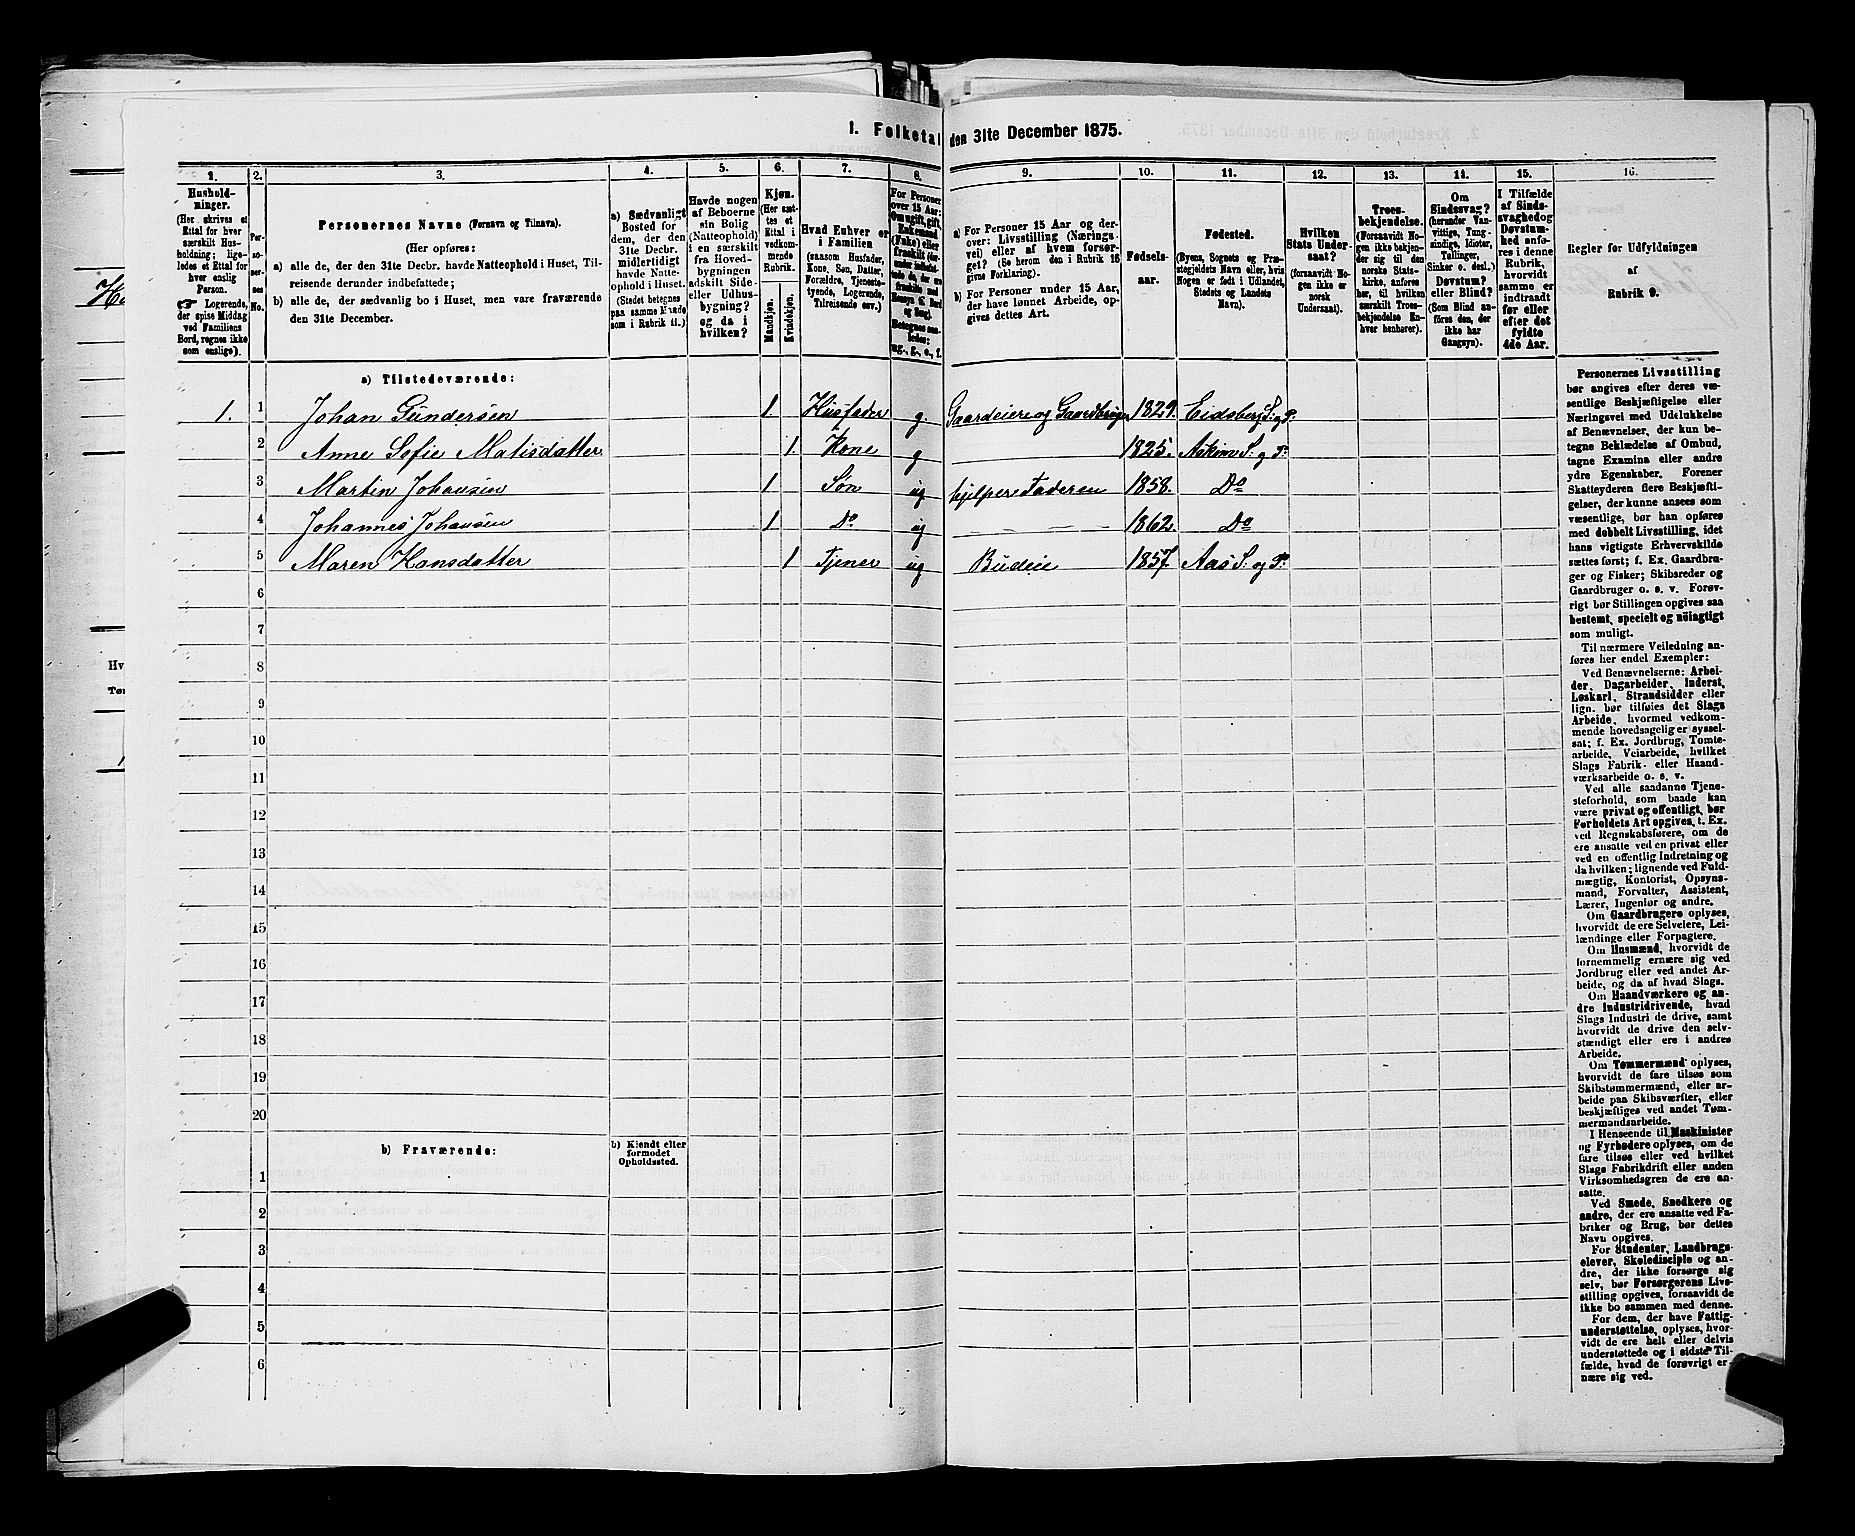 1. Folketal den 31te December 1875.
1. 2. 3. 4. 5. 6. 7. 8. 9. 10. 11. 12. 13. 14. 15. 16.
Hushold-
ninger.
(Her skrives et
Ettal for hver
særskilt Hus-
holdning; lige-
ledes et Ettal for
hver enslig
Person.
☛ Logerende,
der spise Middag
ved Familiens
Bord, regnes ikke
som enslige).
Per-
so-
ner-
nes
No.
Personernes Navne (Fornavn og Tilnavn).
(Her opføres:
a) alle de, der den 31te Decbr. havde Natteophold i Huset, Til-
reisende derunder indbefattede;
b) alle de, der sædvanlig bo i Huset, men vare fraværende
den 31te December.
a) Sædvanligt
Bosted for
dem, der den
31te Decbr.
midlertidigt
havde Natte-
ophold i Huset.
(Stedet betegnes
paa samme Maade
som i Rubrik 11.)
Havde nogen
af Beboerne
sin Bolig
(Natteophold)
i en særskilt
fra Hoved-
bygningen
adskilt Side-
eller Udhus-
bygning?
og da i
hvilken?
Kjøn.
(Her sæt-
tes et
Ettal i
vedkom-
mende
Rubrik.
Mandkjøn.
Kvindekjøn.
Hvad Enhver er
i Familien
(saasom Husfader,
Kone, Søn, Datter,
Forældre, Tjeneste-
tyende, Logerende,
Tilreisende osv.)
For Personer
over 15 Aar:
Om ugift, gift,
Enkemand
(Enke) eller
fraskilt
a) For Personer 15 Aar og der-
over: Livsstilling (Nærings-
vei) eller af hvem forsør-
get? (Se herom den i Rubrik 16
givne Forklaring).
b) For Personer under 15 Aar,
der have lønnet Arbeide, op-
gives dettes Art.
Fødsels-
aar.
Fødested.
(Byens, Sognets og Præ-
stegjeldets Navn eller, hvis
Nogen er født i Udlandet,
Stedets og Landets
Navn).
Hvilken
Stats Under-
saat?
(forsaavidt No-
gen ikke er
norsk
Undersaat).
Troes-
bekjendelse.
(Forsaavidt No-
gen ikke bekjen-
der sig til den
norske Stats-
kirke, anføres
her, til hvilken
særskilt Troes-
bekjendelse En-
hver henhører).
Om
Sindssvag?
(herunder Van-
vittige, Tung-
sindige, Idioter,
Tullinger,
Sinker o. desl.)
Døvstum?
eller Blind?
(Som Blind an-
føres den, der
ikke har
Gangsyn).
I Tilfælde
af Sinds-
svaghed og
Døvstum-
hed anfø-
res i denne
Rubrik,
hvorvidt
samme er
indtraadt
før eller
efter det
fyldte
4de Aar.
Regler for Udfyldningen
af
Rubrik 9.
a) Tilstedeværende:
1. 1 Johan Gundersen 1. Husfader g. Gaardeier og Gaardbruger 1829. Eidsberg S. og P.
2 Anne Sofie Matisdatter 1. Kone g 1825. Askim S. og P.
3 Martin Johansen 1 Søn ug hjelper Faderen 1858. Do
4 Johannes Johansen 1 Do ug — — — 1862. Do
5 Maren Hansdatter 1 Tjener ug Budeie 1857. Aas S. og P.
6
7
8
9
10
11
12
13
14
15
16
17
18
19
20
b) Fraværende:
b) Kjendt eller
formodet
Opholdssted.
1
2
3
4
5
6
Personernes Livsstilling
bør angives efter deres væ-
sentlige Beskjæftigelse eller
Næringsvei med Udelukkelse
af Benævnelser, der kun be-
tegne Beklædelse af Ombud,
tagne Examina eller andre
ydre Egenskaber. Forener
Skatteyderen flere Beskjæfti-
gelser, der kunne ansees som
væsentlige, bør han opføres
med dobbelt Livsstilling, idet
hans vigtigste Erhvervskilde
sættes først; f. Ex. Gaardbru-
ger og Fisker; Skibsreder og
Gaardbruger o. s. v. Forøv-
rigt bør Stillingen opgives saa
bestemt, specielt og nöiagtigt
som muligt.
Til nærmere Veiledning an-
føres her endel Exempler:
Ved Benævnelserne: Arbei-
der, Dagarbeider, Inderst,
Løskarl, Strandsidder eller
lign. bør tilføies det Slags
Arbeide, hvormed vedkom-
mende hovedsagelig er syssel-
sat; f. Ex. Jordbrug, Tomte-
arbeide, Veiarbeide, hvilket
Slags Fabrik- eller Haand-
værksarbeide o. s. v.
Ved alle saadanne Tjene-
steforhold, som baade kan
være privat og offentligt, bør
Forholdets Art opgives, f. Ex.
ved Regnskabsførere, om de
ere ansatte ved en privat eller
ved en offentlig Indretning og
da hvilken; lignende ved Fuld-
mægtig, Kontorist, Opsyns-
mand, Forvalter, Assistent,
Lærer, Ingeniør og andre.
Om Gaardbrugere oplyses,
hvorvidt de ere Selveiere, Lei-
lændinge eller Forpagtere.
Om Husmænd, hvorvidt de
fornemmelig ernære sig ved
Jordbrug eller ved andet Ar-
beide, og da af hvad Slags.
Om Haandværkere og an-
dre Industridrivende, hvad
Slags Industri de drive, samt
hvorvidt de drive den selv-
stændigt eller ere i andres
Arbeide.
Om Tømmermænd oplyses,
hvorvidt de fare tilsøs som
Skibstømmermænd, eller ar-
beide paa Skibsværfter, eller
beskjæftiges ved andet Tøm-
mermandsarbeide.
I Henseende til Maskinister
og Fyrbødere oplyses, om de
fare tilsøs eller ved hvilket
Slags Fabrikdrift eller anden
Virksomhedsgren de ere an-
satte.
Ved Smede, Snedkere og
andre, der ere ansatte ved Fa-
briker og Brug, bør dettes
Navn opgives.
For Studenter, Landbrugs-
elever, Skoledisciple og an-
dre, der ikke forsørge sig
selv, bør Forsørgerens Livs-
stilling opgives, forsaavidt de
ikke bo sammen med denne.
For dem, der have Fattig-
understøttelse, oplyses, hvor-
vidt de ere helt eller delvis
understøttede og i sidste Til-
fælde, hvad de forøvrigt er-
nære sig ved.